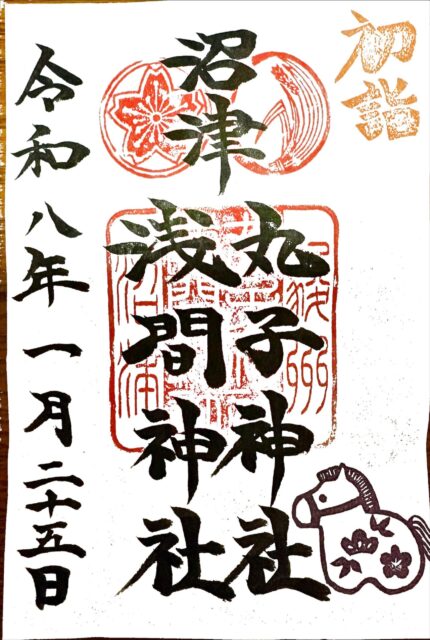 初詣
沼津
丸子神社
浅間神社
令和八年一月二十五日